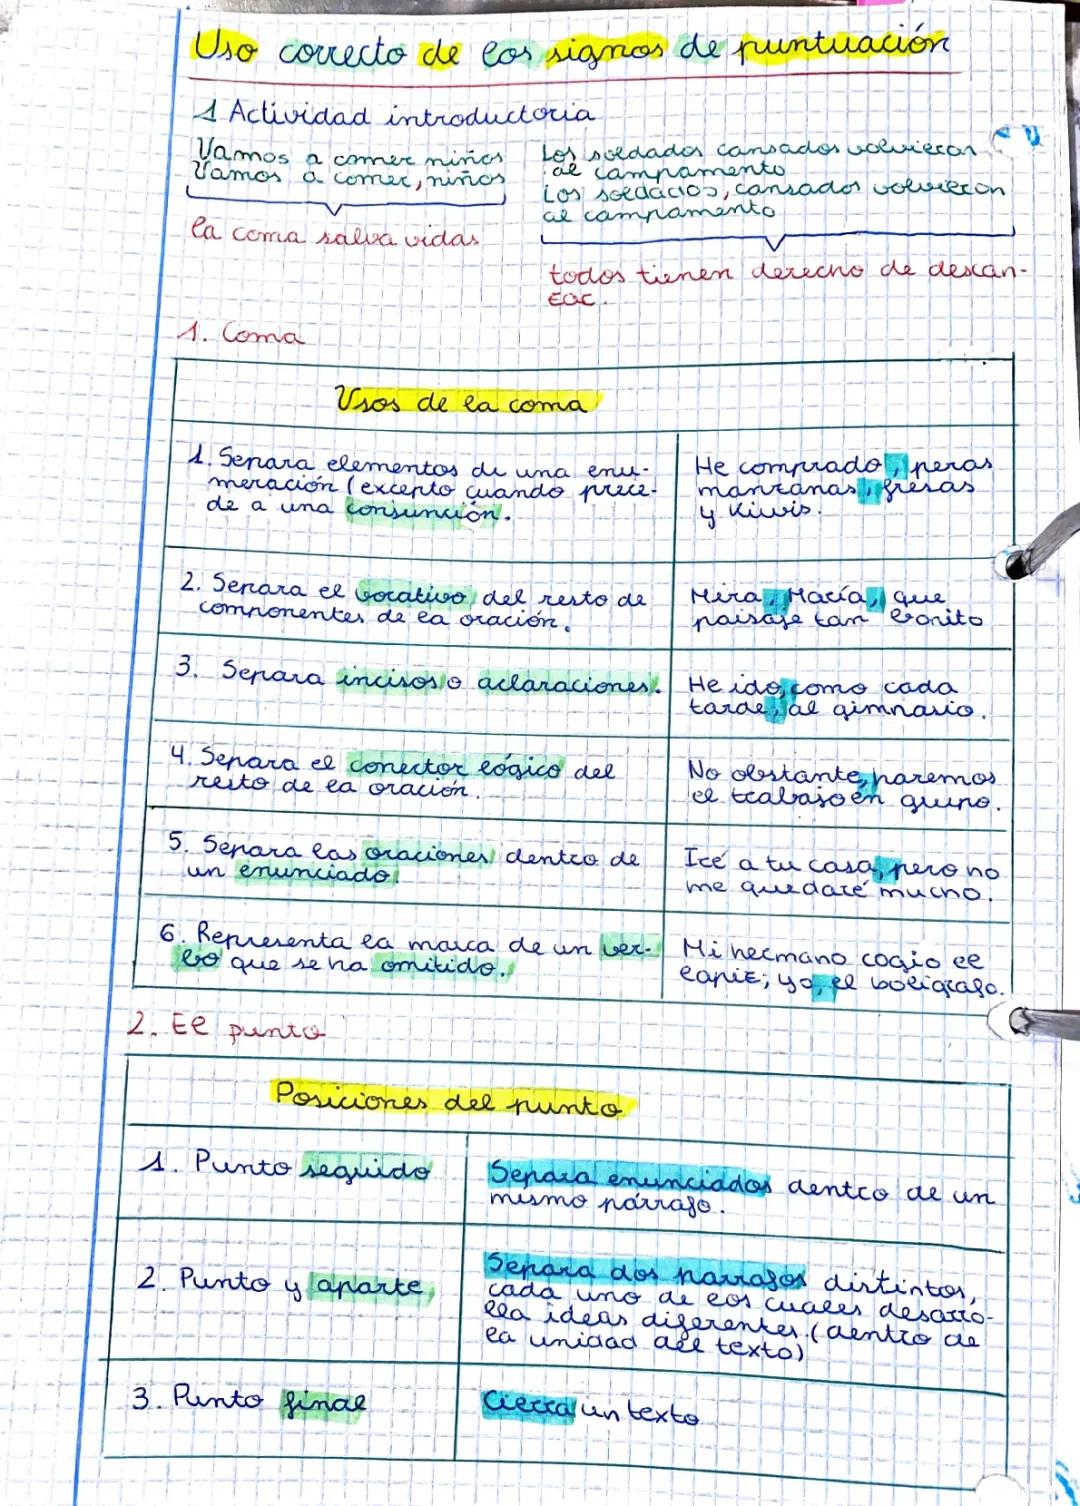 Uso correcto de los signos de puntuación
1 Actividad introductoria
Vamos a comer niños
Vamos a comer, niños
la coma salva vidas
Los soldados cansados volvieron
al campamento
Los soldados, cansados volvieron
al campamento
todos tienen derecho de descan-
sar.
1. Coma
Usos de la coma
1. Separa elementos de una enu-
meración (excepto cuando prece-
de a una conjunción.
He comprado, peras
manzanas, fresas
y kiwis.
2. Separa el vocativo del resto de
componentes de la oración.
Mira, María, que
paisaje tan bonito
3. Separa incisos o aclaraciones.
He ido, como cada
tarde, al gimnasio.
4. Separa el conector lógico del
resto de la oración.
No obstante, haremos
el trabajo en grupo.
5. Separa las oraciones dentro de
un enunciado.
Iré a tu casa, pero no
me quedaré mucho.
6. Representa la marca de un ver-
bo que se ha omitido.
Mi hermano cogio el
lapiz; yo, el boligrafo.
2. El punto
Posiciones del punto
1. Punto seguido
Separa enunciados dentro de un
mismo párrafo.
2. Punto y aparte
Separa dos parrafos distintos,
cada uno de los cuales desarro-
lla ideas diferentes. (dentro de
la unidad del texto)
3. Punto final
Cierra un texto